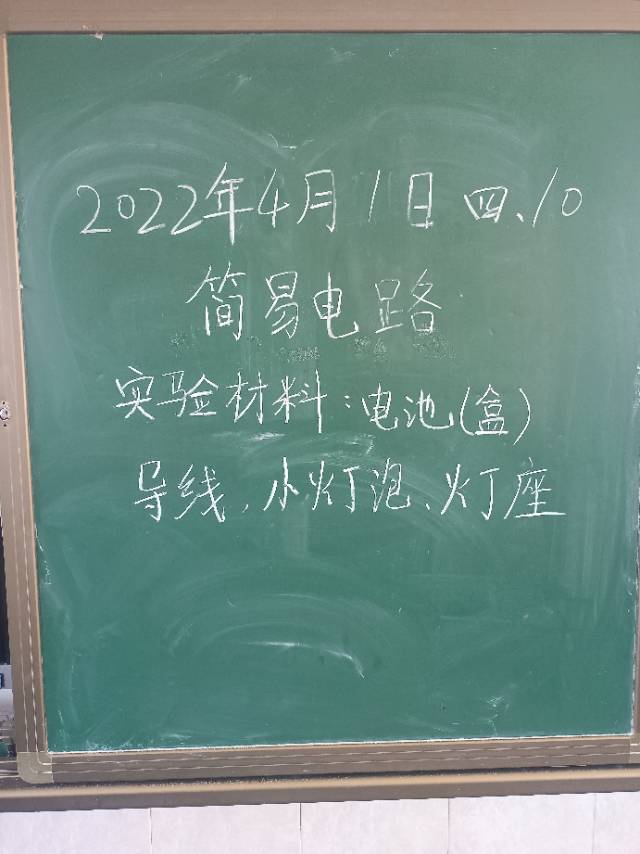 2022年4月1日 四、10
简易电路
实验材料:电池(盒)
导线、小灯泡、灯座